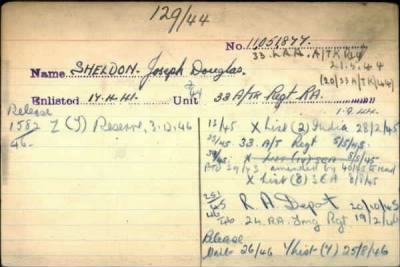 129/44
No. 11051877.
33. LAA. A/TK R4
21.5.44
(20/33 A/TK/44)
Name SHELDON. Joseph Douglas.
Enlisted 17.4.41. Unit 33 A/TK Regt RA.
1.9.44.
Release
1582 Z (T) Reserve, 3.12.46
46.
12/45 X List (2) India 28/2/45
33. A/T Regt 5/5/45.
8/5/45
amended by 40/45 to read
X List (B) SEA 8/5/45
R.A Depot 20/10/45
24. RA. Trng Regt 19/2/46
Release
26/46 Y list (Y) 25/8/46